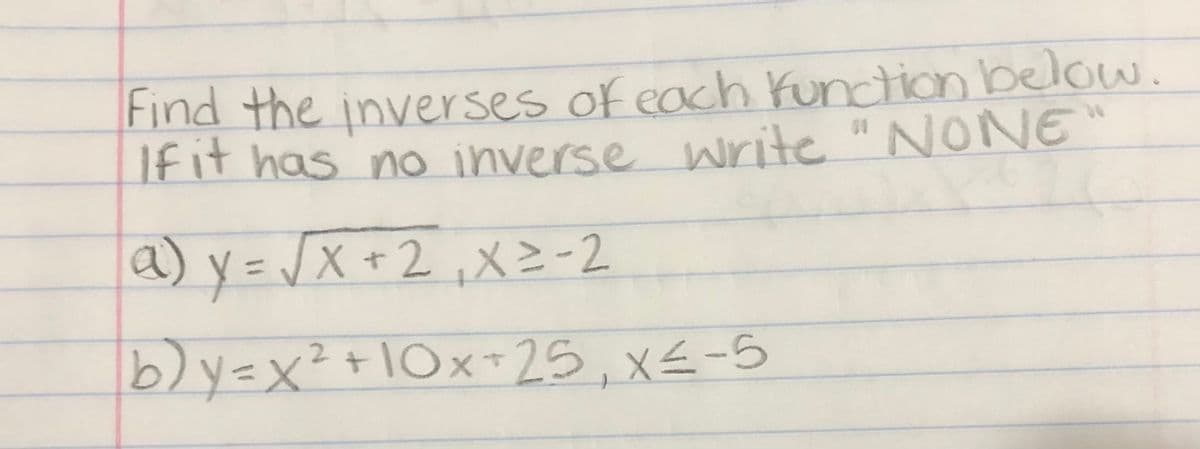 Find the inverses of each function below.
If it has no inverse write "NONE"
a) y = √x + 2 , x ≥ -2
b) y = x² + 10x + 25 , x ≤ -5